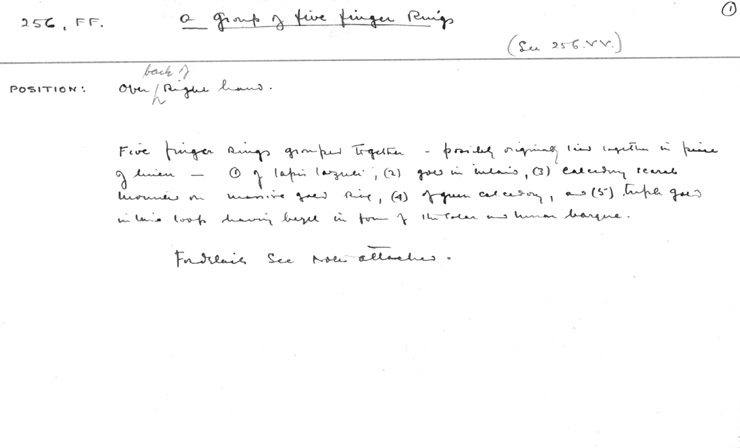 ①
256, FF. a group of five finger Rings
(See 256.VV.)
back of
POSITION: Over Right hand.
Five finger rings grouped together - possibly originally tied together in piece
of linen — ① of lapis lazuli, (2) gold in inlaid, (3) calcedony scarab
mounted on massive gold ring, (4) of green calcedony, and (5) triple gold
inlaid loops having bezel in form of the solar and lunar barque.
For details see Notes attached.